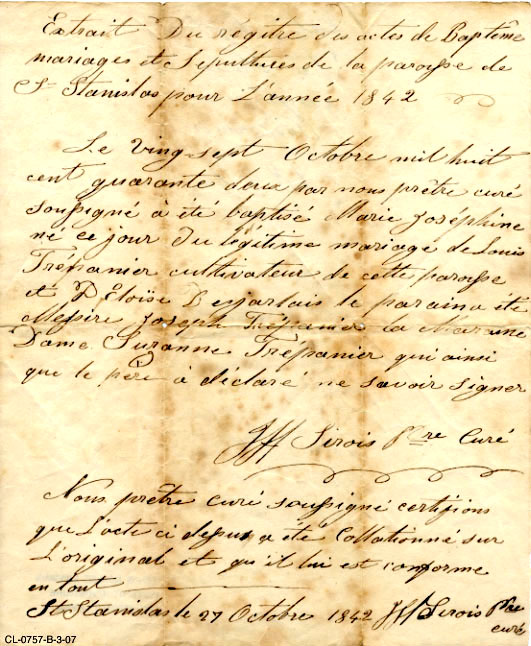 Extrait Du régitre des actes de Baptême
mariages et Sepultures de la paroisse de
St Stanislas pour L'année 1842
Le Ving-sept Octobre mil huit
cent quarante deux par nous prêtre curé
soussigné à été baptisé Marie Joséphine
né ce jour du légitime mariage de Louis
Trépanier cultivateur de cette paroisse
et D'Eloïse Desjarlais le parain a été
Messire Joseph Trépanier la Maraine
Dame Suzanne Trépanier qui ainsi
que le père à déclaré ne savoir signer
Sirois Ptre Curé
Nous prêtre curé soussigné certifions
que L'acte ci dessus a été Collationné sur
L'original et qu'il lui est conforme
en tout
St Stanislas le 27 Octobre 1842 Sirois Ptre
curé
CL-0757-B-3-07